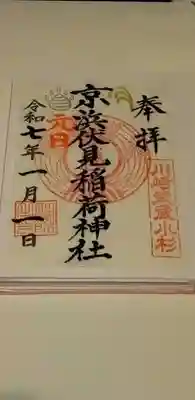 奉拝
川崎武蔵小杉
京浜伏見稲荷神社
元日
令和七年一月一日